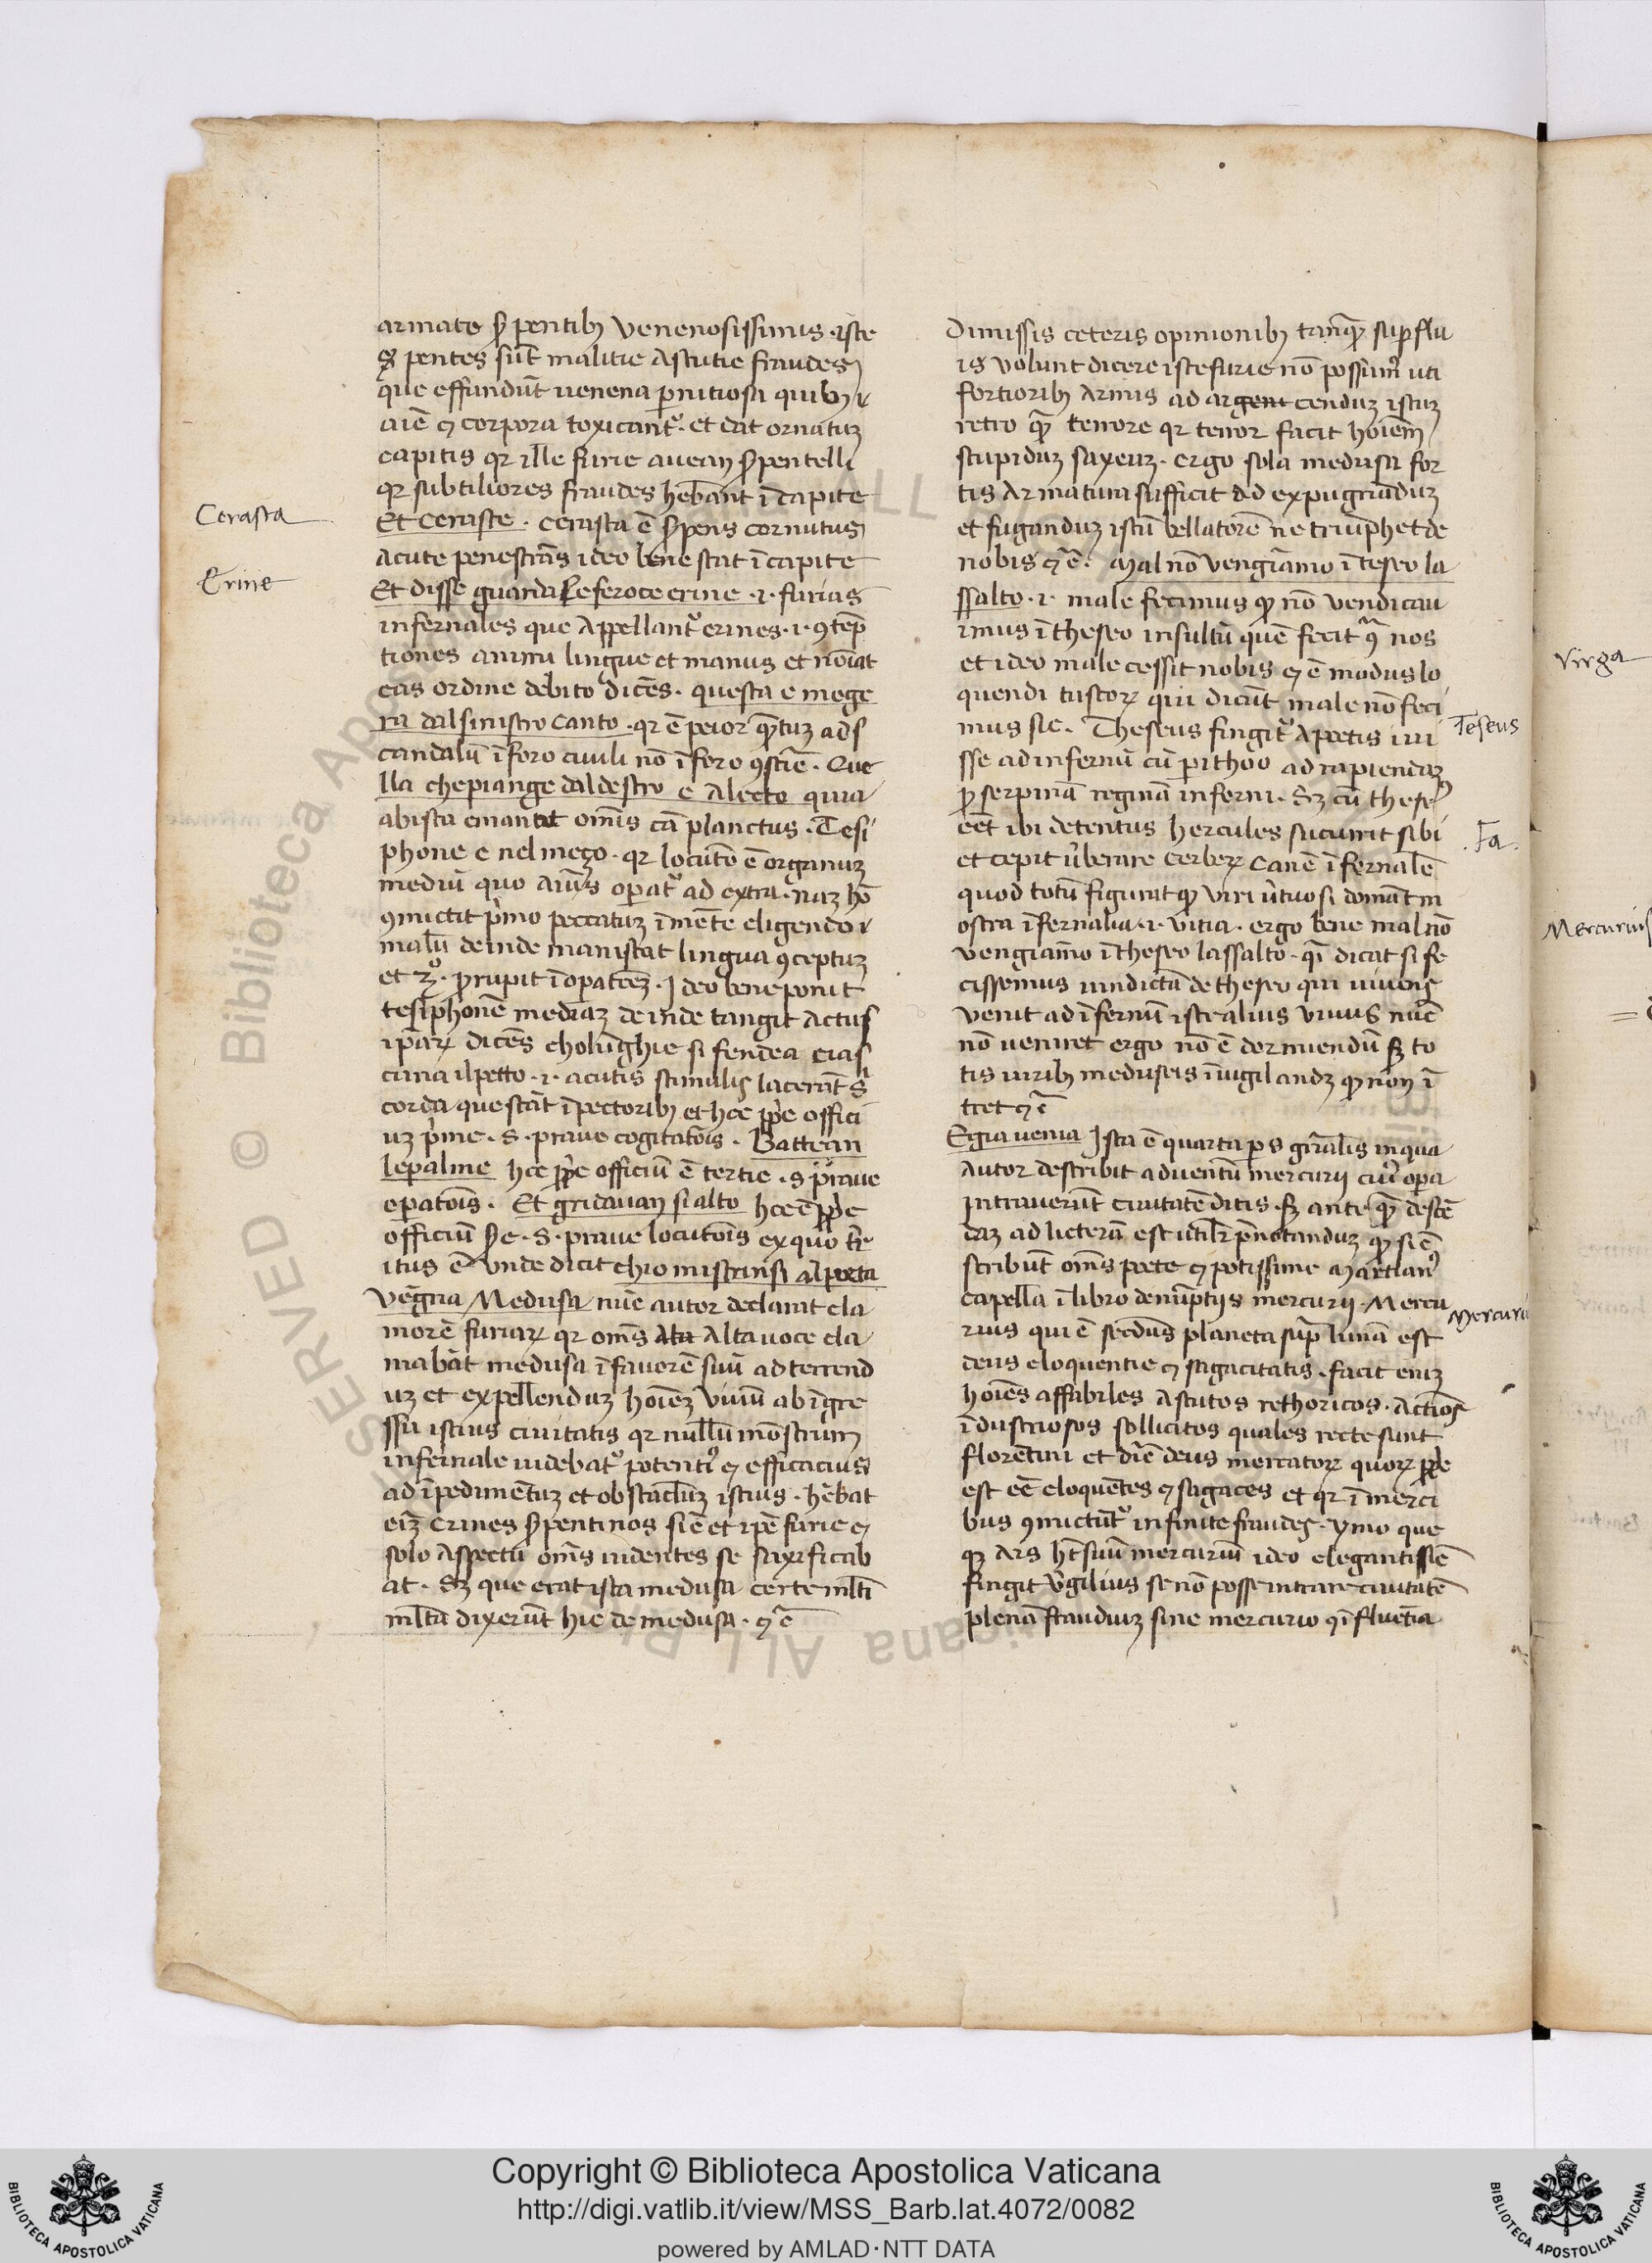 armate serpentibus venenosissimis . iste
serpentes sunt malitie astutie fraudes
que effundunt uenena pernitiosa quibus .i.
aie et corpora toxicantur . et dat ornatuz
capitis qr ille furie auean serpentelli
qr subtiliores fraudes hebant i capite
Et ceraste . cerasta e serpens cornutus
acute penestrans ideo bene stat i capite
Et disse guarda le feroce erine .i. furias
infernales que appellantur erines .i. 9tep
tiones animi lingue et manus et noiat
eas ordine debito dicens . questa e mege
ra dal sinistro canto . qr e peior quantuz ad s
candalu i foro ciuili no i foro 9scie . Que
lla che piange dal destro e Alecto quia
ab ista emanat omis ca planctus . Tesi
phone e nel meço . qr locutio e organuz
mediu quo aius operatur ad extra . naz ho
9mictit primo peccatuz i mente eligendo .i.
malu deinde manifestat lingua 9ceptuz
et 3o . prorupit i operationez . Ideo bene ponit
tesiphone mediaz deinde tangit actus
ipsarum dicens cholunghie si fendea cias
cuna il petto .i. acutis stimulis lacerant sua
corda que stat i pectoribus et hec proprie offici
uz prime . s . praue cogitationis . Battean
le palme hec proprie officiu e tertie . s . praue
operationis . Et gridauan si alto hec e proprie
officiu secunde . s . praue locutionis ex quo ter
itus e vnde dicit chio mi strinsi al poeta
vegna Medusa nuc autor declarat cla
more furiarum qr omis alta uoce cla
mabat medusa i fauore suu ad terrend
uz et expellenduz hoiez viuu ab igre
ssu istius ciuitatis qr nullu monstrum
infernale uidebatur potentius et efficacius
ad ipedimentuz et obstaculuz istius . hebat
eniz crines serpentinos sic et ipse furie et
solo aspectu omis uidentes se saxificab
at . Sz que erat ista medusa certe multi
multa dixerunt hic de medusa . et c
Cerasta
Erine
Dimissis ceteris opinionibus tanquam superflu
is volunt dicere iste furie no possumus uti
fortioribus armis ad argent cenduz istuz
retro quam terrore qr terror facit hoiem
stupiduz saxeuz . ergo sola medusa for
tis armatura sufficit ad expugnanduz
et fuganduz istu bellatore ne triumphet de
nobis et c . Mal non vengiamo i teseo la
ssalto .i. male fecimus quod no vendicau
imus i theseo insultu que fecit contra nos
et ideo male cessit nobis et e modus lo
quendi tuscorum qui dicunt male no feci
mus sic . Theseus fingitur a poetis iui
sse ad infernu cu perithoo ad rapiendaz
proserpina regina inferni . Sz cu theseus
eet ibi detentus hercules sucurrit sibi
et cepit uberare cerberum cane i fernale
quod totu figurat quod viri uirtuosi domant m
ostra i fernalia .i. vitia . ergo bene mal no
vengiamo i theseo lassalto . quasi dicat si fe
cissemus uindicta de theseo qui uiuens
venit ad i fernu iste alius viuus nuc
no ueniret ergo no e dormiendu sed to
tis uiribus meduseis i uigilandum quod non i
tret et c
E gia venia Ista e quarta pars generalis in qua
autor describit aduentu mercurii cuius opera
intrauerunt ciuitate ditis . sed ante quam desce
daz ad lictera est utiliter prenotanduz quod sic
scribunt omis poete et potissime Martianus
capella i libro de nuptiis mercurii . Mercu
rius qui e secundus planeta supra luna est
deus eloquentie et sagacitatis . facit enim
hoies affabiles astutos rethoricos . actios
i dustriosos sollicitos quales recte sunt
florentini et dicitur deus mercatorum quorum proprie
est ee eloquentes et sagaces et qr i merci
bus 9mictuntur infinite fraudes . ymo que
que ars habet suu mercuriu ideo elegantissie
fingit virgilius se no posse intrare ciuitate
plena fraudiuz sine mercurio 9 i fluentia
Teseus
. Fa .
Mercuri
Virga
Mercurius
Copyright © Biblioteca Apostolica Vaticana
http://digi.vatlib.it/view/MSS_Barb.lat.4072/0082
powered by AMLAD·NTT DATA
BIBLIOTECA APOSTOLICA VATICANA
BIBLIOTECA APOSTOLICA VATICANA